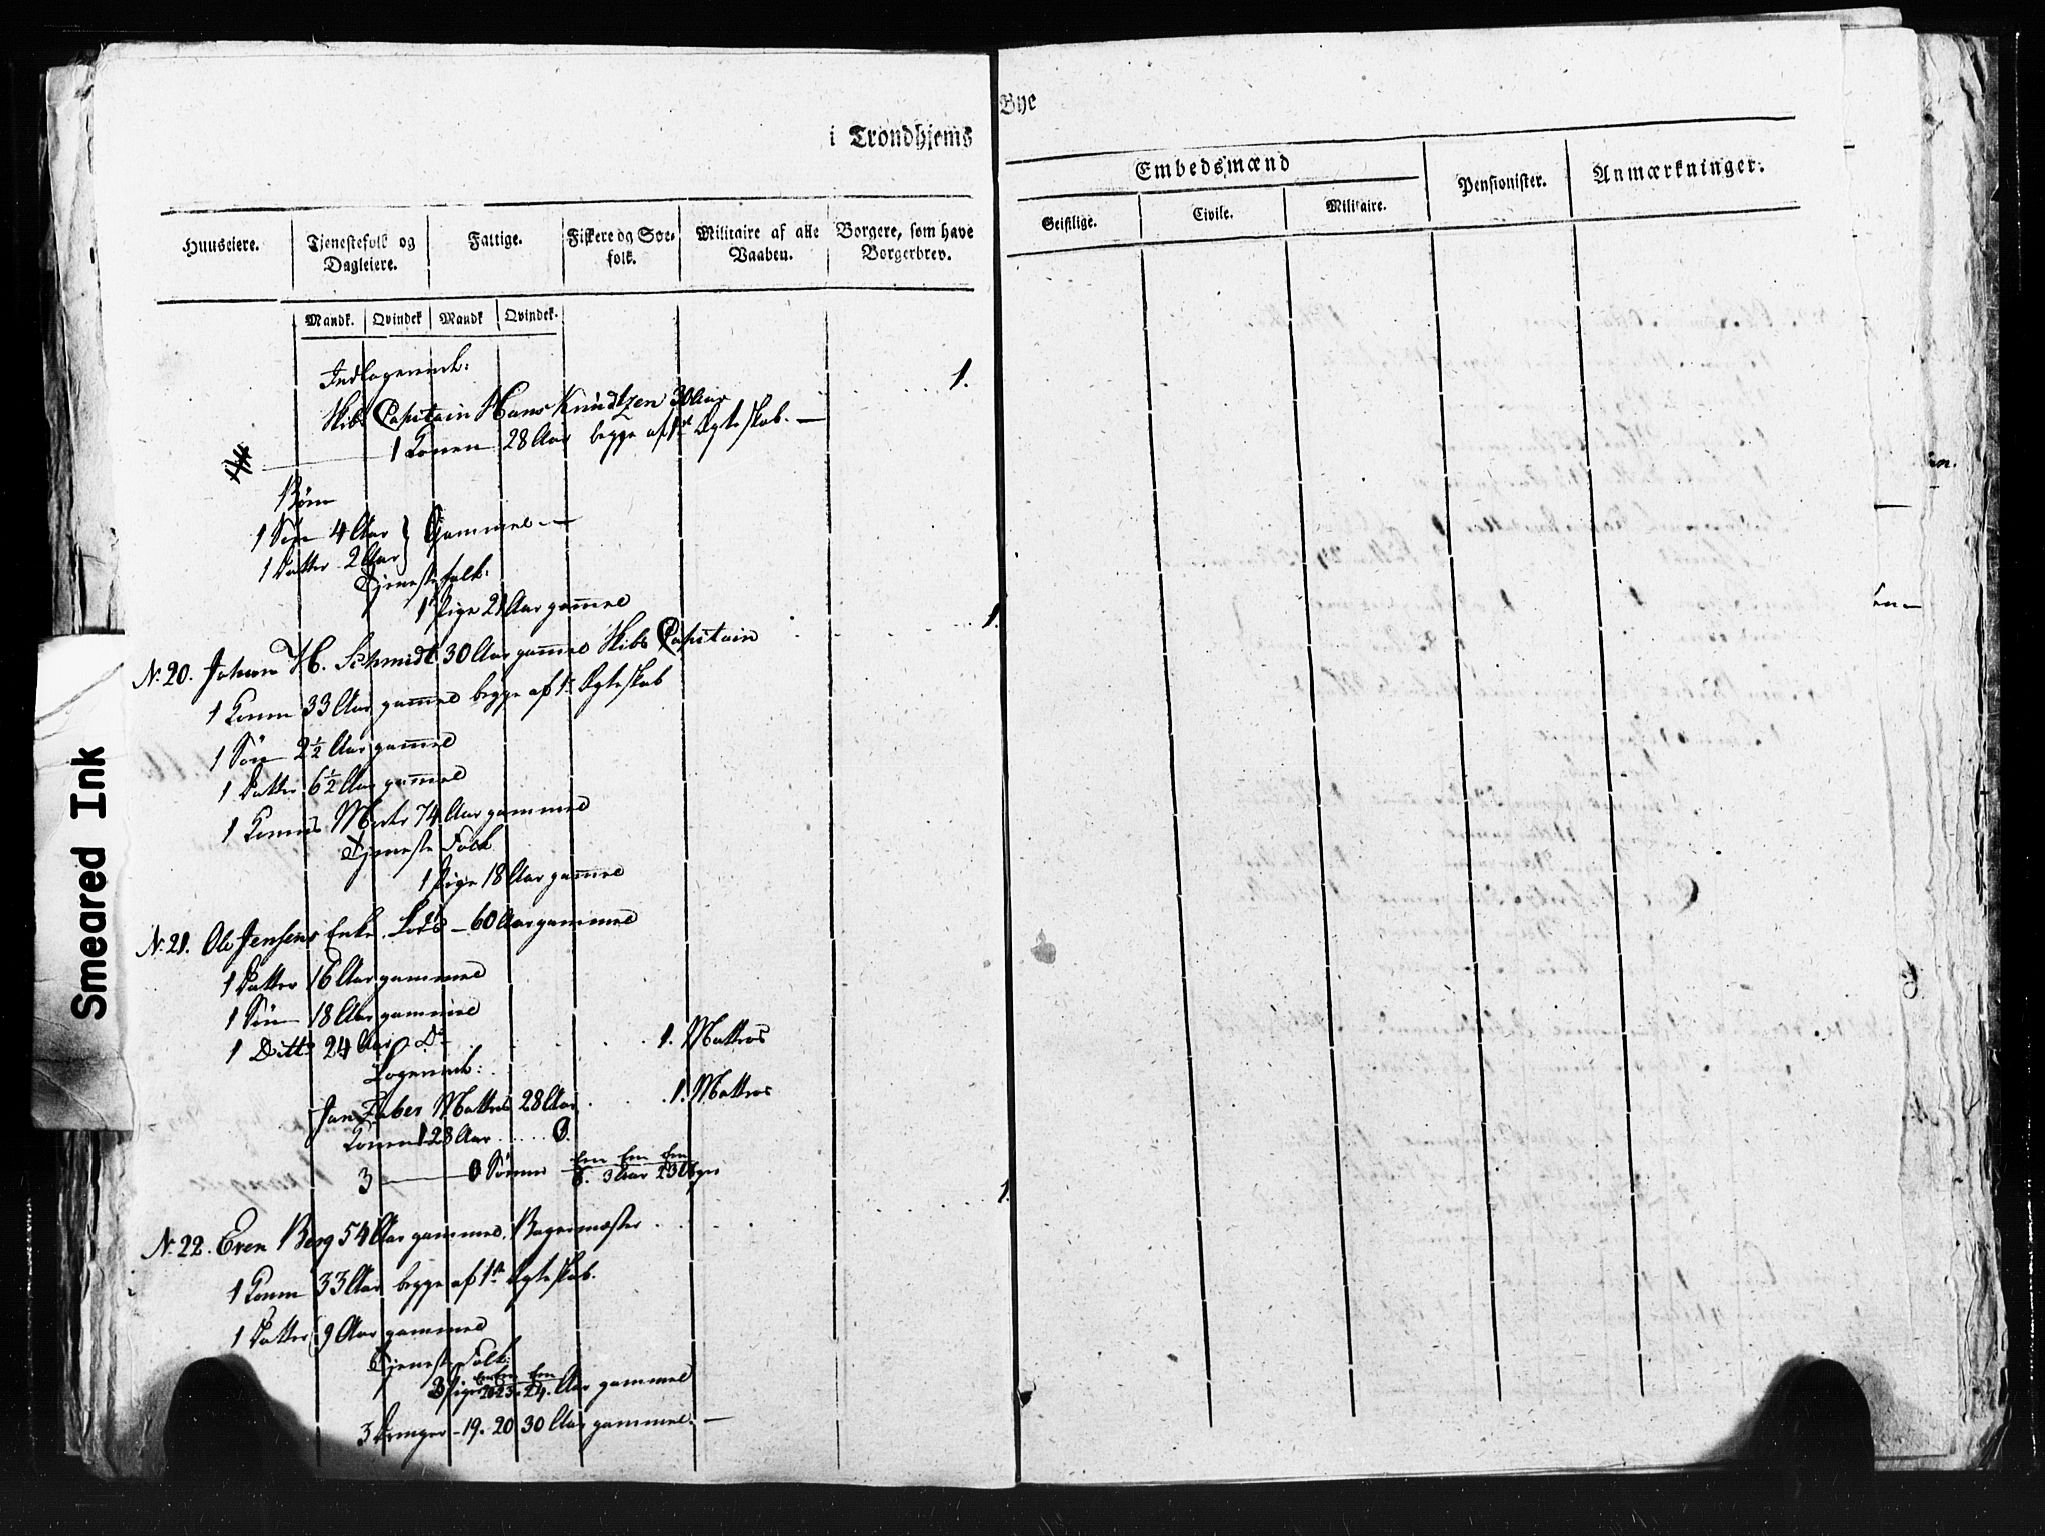 i Trondhjems Bye
Huuseiere. Tjenestefolk og Dagleiere. Fattige. Fiskere og Søefolk. Militaire af alle Vaaben. Borgere, som have Borgerbrev.
Embedsmænd Pensionister. Anmærkninger.
Geistlige. Civile. Militaire.
Mandk. Qvindek Mandk Qvindek.
Indlogerende: 1.
Skibs Capitain Hans Knudtzen 30 Aar
1 Konen 28 Aar begge af 1ste Ægteskab. —
Børn
1 Søn 4 Aar } Gammel —
1 Datter 2 Aar
Tjenestefolk:
1 Pige 21 Aar gammel
1.
N: 20. Johan H. Schmidt 30 Aar gammel Skibs Capitain
1 Konen 33 Aar gammel begge af 1te Ægteskab
1 Søn 2½ Aar gammel
1 Datter 6½ Aar gammel
1 Konens Moder 74 Aar gammel
Tjeneste Folk
1 Pige 18 Aar gammel
N: 21. Ole Jensens Enke — 60 Aar gammel
1 Datter 16 Aar gammel
1 Søn 18 Aar gammel
1 Ditto 24 Aar Do 1. Mattros
Logerende:
Jan Faber Mattros 28 Aar 1. Mattros
Konen 1 28 Aar
3 Sønner En En En
8. 3 Aar 23 Uger
1.
N: 22. Even Berg 54 Aar gammel. Bagermester
1 Konen 33 Aar begge af 1ste Ægteskab.
1 Datter 9 Aar gammel
Tjeneste Folk:
3 Piger En 20 En 23. En 24. Aar gammel
3 Drenger — 19. 20 30 Aar gammel. —
Smeared Ink